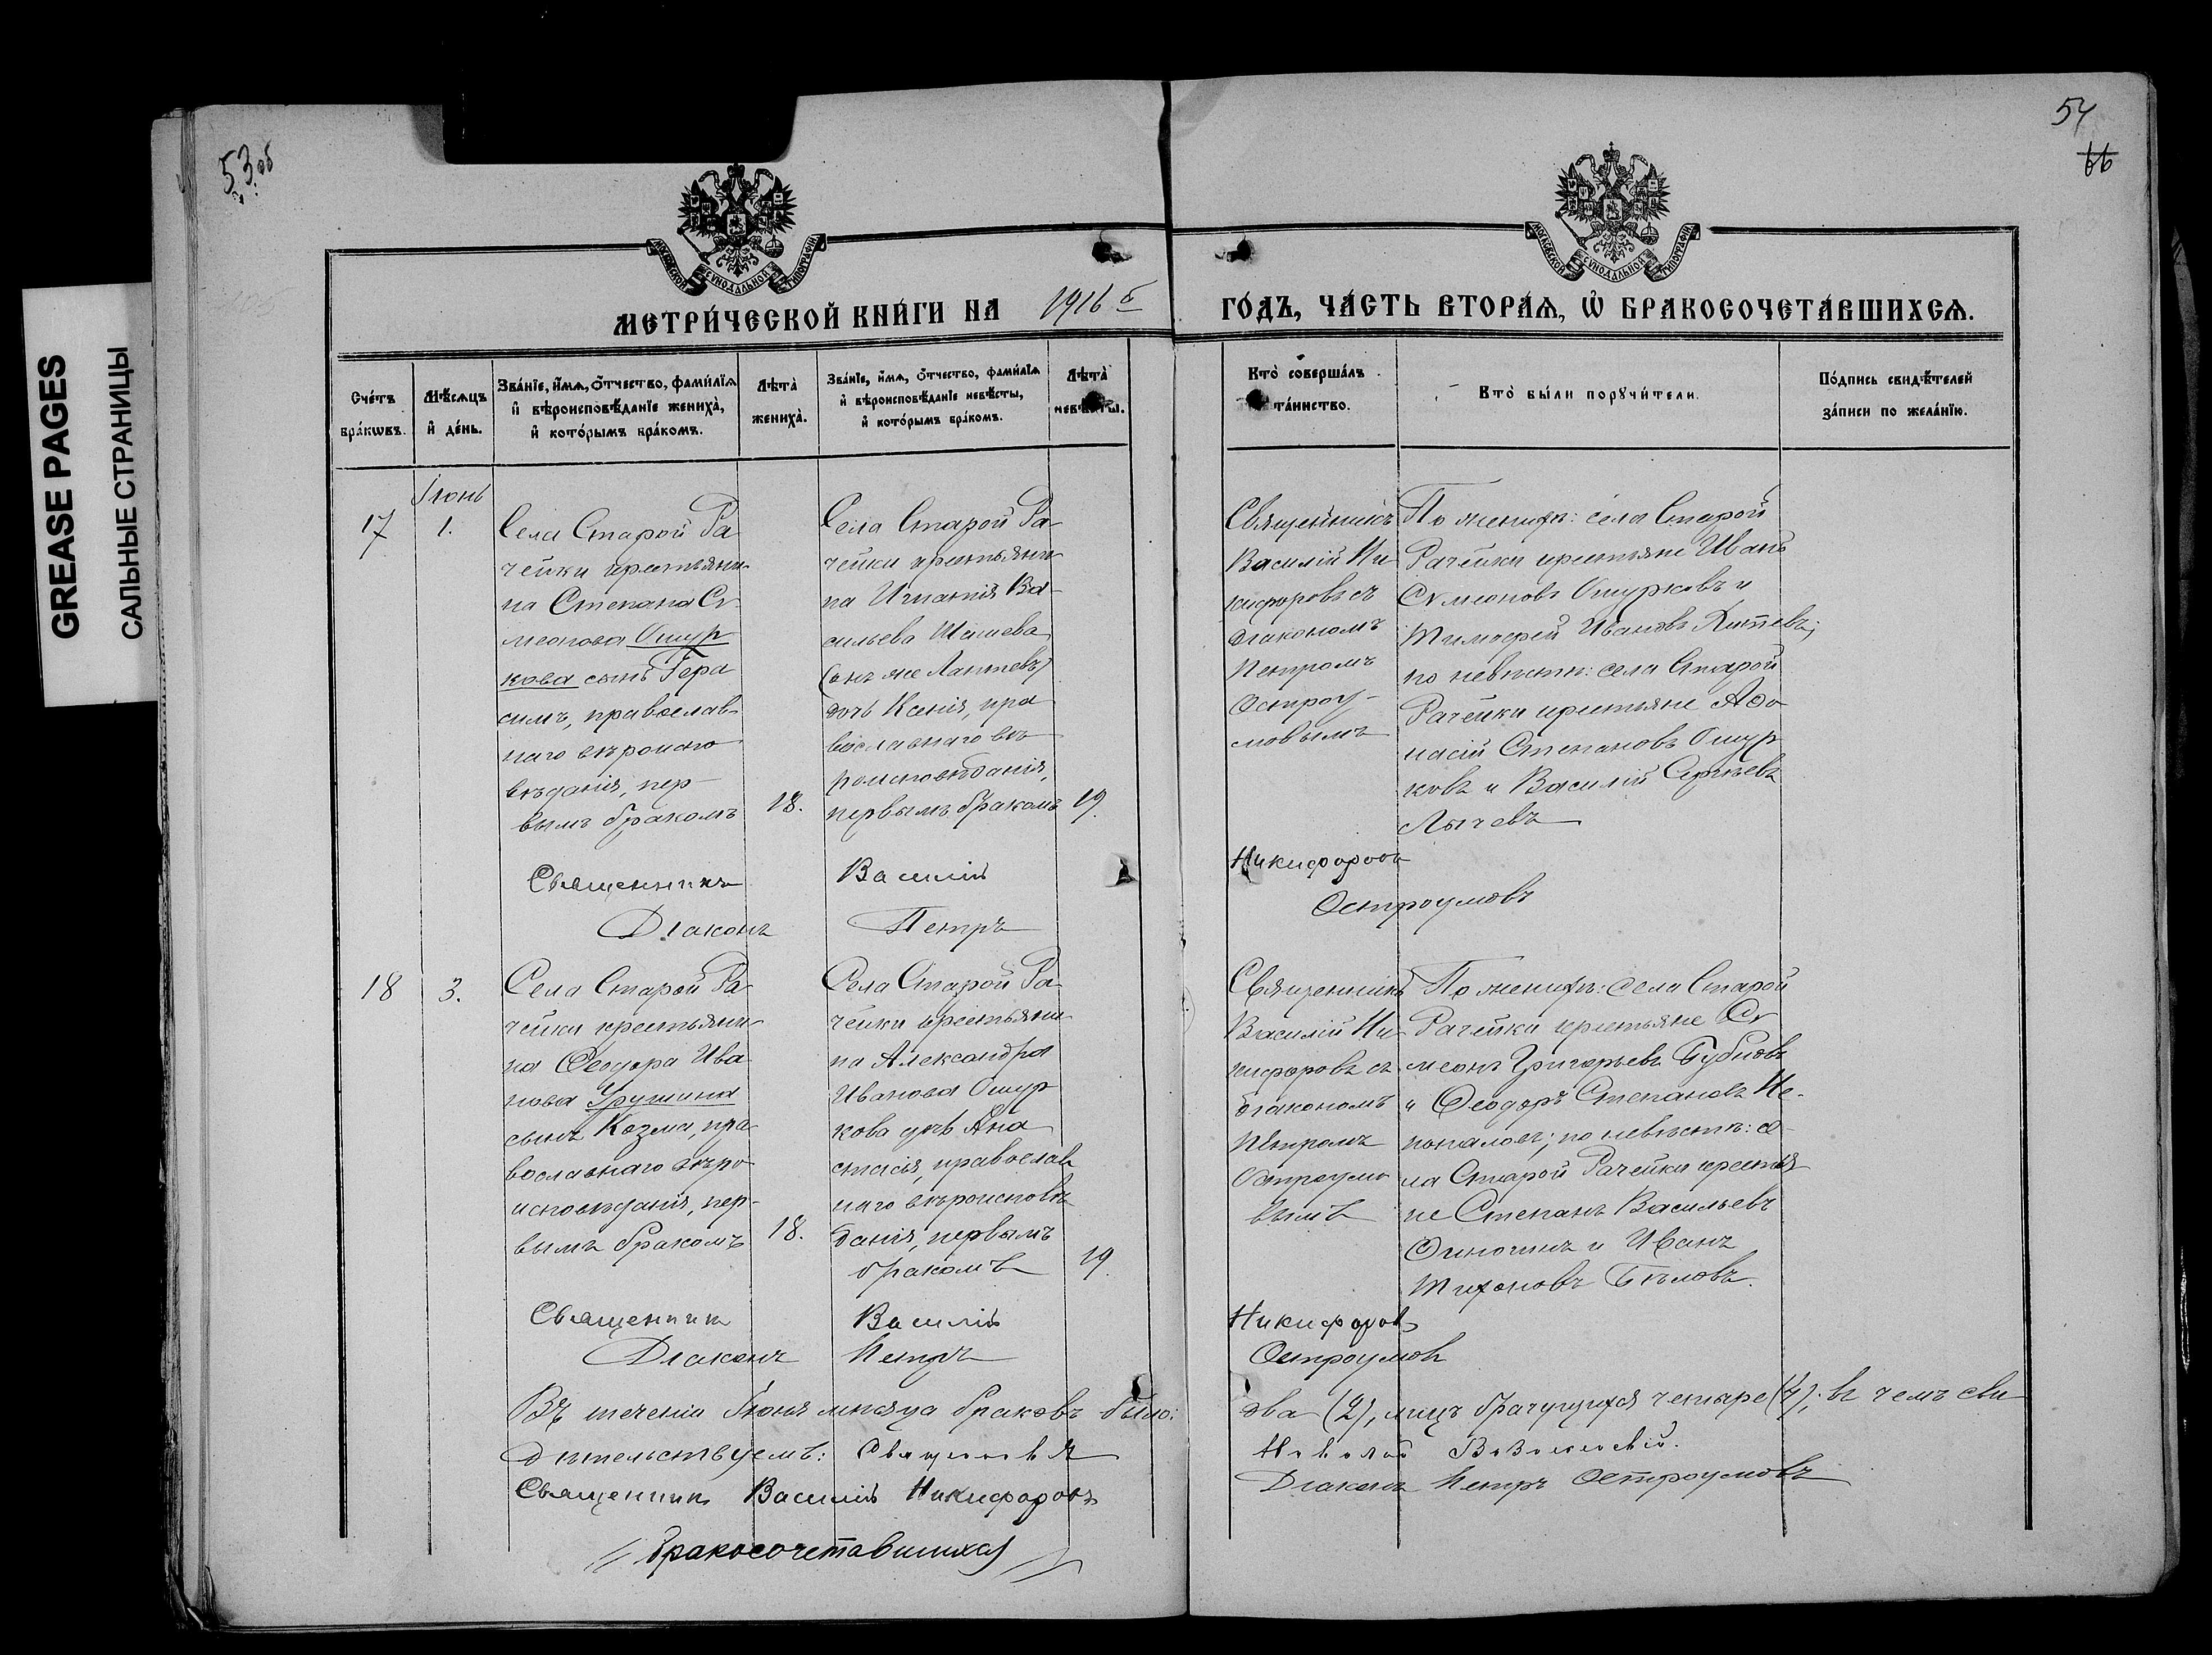 GREASE PAGES
САЛЬНЫЕ СТРАНИЦЫ
53об
54
66
МОСКОВСКОЙ СѴНОДАЛЬНОЙ ТИПОГРАФІИ
МОСКОВСКОЙ СѴНОДАЛЬНОЙ ТИПОГРАФІИ
МЕТРИ́ЧЕСКОЙ КНИ́ГИ НА 1916 й
ГО́ДЪ, ЧА́СТЬ ВТОРА́Я, Ѡ БРАКОСОЧЕТА́ВШИХСЯ.
Сче́тъ
бра́кѡвъ.
Мѣ́сяцъ
и҆ де́нь.
Зва́нїе, и҆́мя, ѻ҆́тчество, фами́лїя
и҆ вѣроисповѣ́данїе жениха̀,
и҆ кото́рымъ бра́комъ.
Лѣта̀
жениха̀.
Зва́нїе, и҆́мя, ѻ҆́тчество, фами́лїя
и҆ вѣроисповѣ́данїе невѣ́сты,
и҆ кото́рымъ бра́комъ.
Лѣта̀
невѣ́сты.
Кто̀ соверша́лъ
та́инство.
Кто̀ бы́ли порꙋчи́тели.
По́дпись свидѣ́телей
за́писи по жела́нїю.
Іюнь
17
1.
Села Старой Ра
чейки крестьяни-
на Степана Си
меонова Ошур
кова сынъ Гера
симъ, православ-
наго вѣроиспо
вѣданія, пер-
вымъ бракомъ
18.
Села Старой Ра-
чейки крестьяни-
на Игнатія Ва-
сильева
(онъ же Лаптевъ)
дочь Ксенія, пра
вославнаго вѣ
роисповѣданія,
первымъ бракомъ
19.
Священникъ
Василій Ни
кифоровъ съ
діакономъ
Петромъ
Остроу-
мовымъ
По женихѣ: села Старой
Рачейки крестьяне Иванъ
Симеоновъ Ошурковъ и
Тимофей Ивановъ
по невѣстѣ: села Старой
Рачейки крестьяне Аѳа
насій Степановъ Ошур
ковъ и Василій Сергѣевъ
Лычевъ
Священникъ Василій Никифоровъ
Діаконъ Петръ Остроумовъ
18
3.
Села Старой Ра
чейки крестьяни-
на Ѳеодора Ива
нова
сынъ Козма, пра-
вославнаго вѣро
исповѣданія, пер-
вымъ бракомъ
18.
Села Старой Ра-
чейки крестьяни-
на Александра
Иванова Ошур
кова дчь Ана
стасія, православ
наго вѣроисповѣ
данія, первымъ
бракомъ
19.
Священникъ
Василій Ни
кифоровъ съ
діакономъ
Петромъ
Остроумо
вымъ
По женихѣ: села Старой
Рачейки крестьяне Си
меонъ Григорьевъ Бубновъ
и Ѳеодоръ Степановъ Не-
по невѣстѣ: се-
ла Старой Рачейки крестья-
не Степанъ Васильевъ
и Иванъ
Тихоновъ Бѣловъ.
Священникъ Василій Никифоровъ
Діаконъ Петръ Остроумовъ
Въ теченіи Іюня мѣсяца браковъ было: два (2), лицъ брачущихся четыре (4); въ чемъ сви
дѣтельствуемъ: Священникъ Николай
Священникъ Василій Никифоровъ Діаконъ Петръ Остроумовъ
бракосочетавшихся